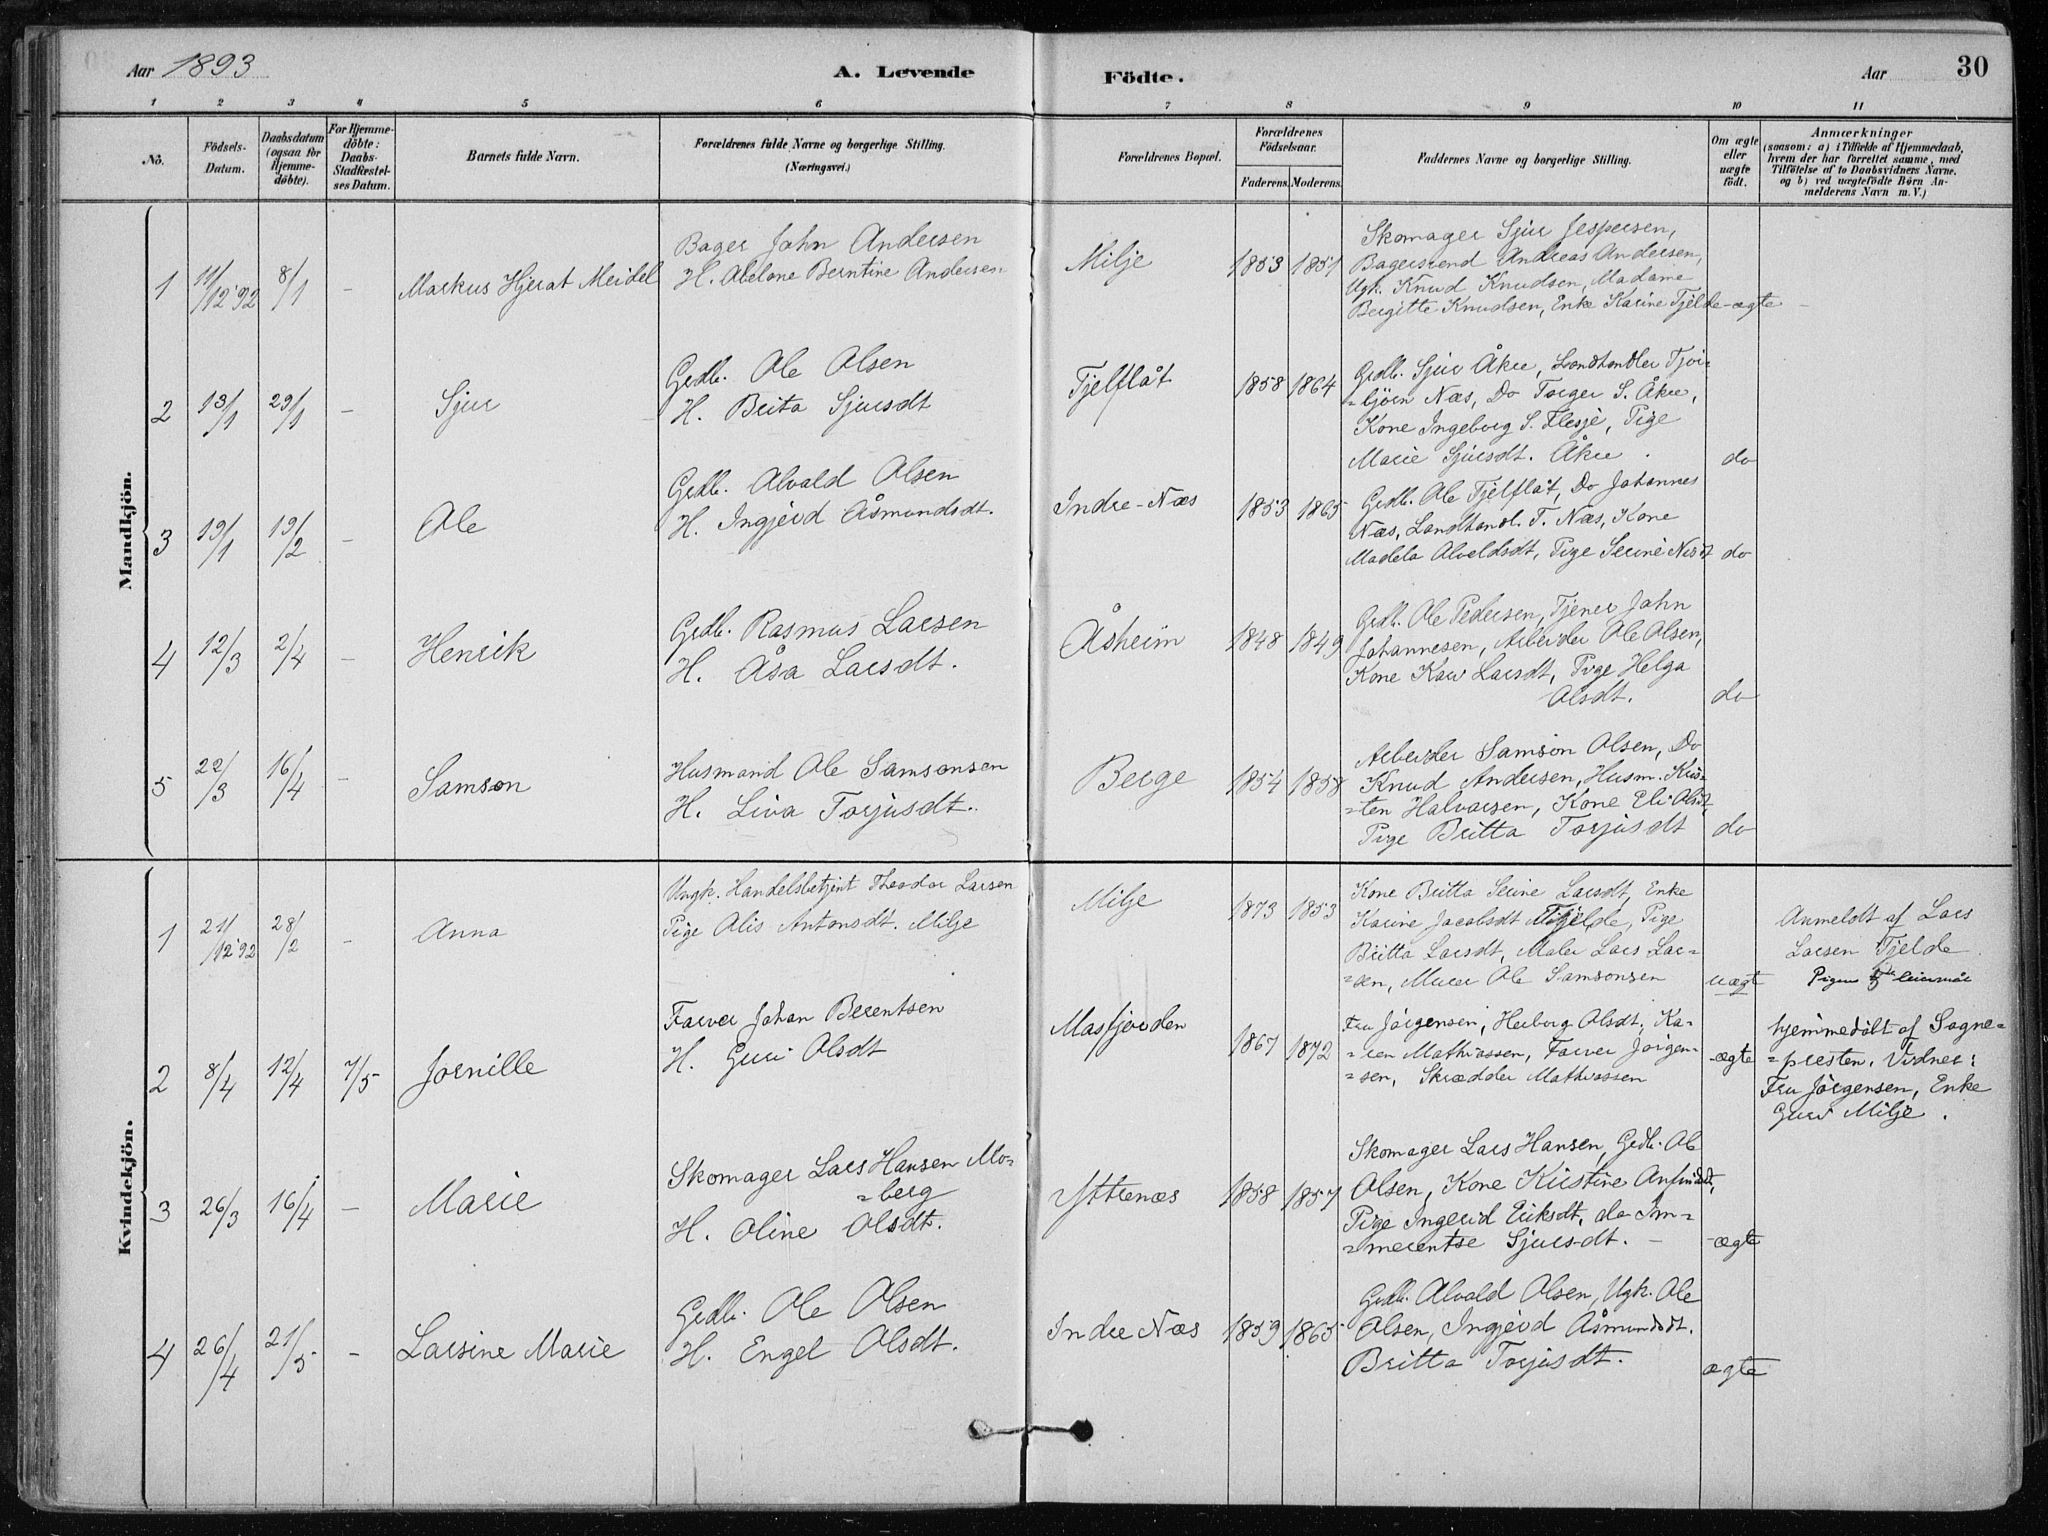 Aar 1893
A. Levende
Födte.
Aar
30
1 2 3 4 5 6 7 8 9 10 11
No.
Födsels-
Datum.
Daabsdatum
(ogsaa for
Hjemme-
döbte).
For Hjemme-
döbte:
Daabs-
Stadfæstel-
ses Datum.
Barnets fulde Navn.
Forældrenes fulde Navne og borgerlige Stilling.
(Næringsvei.)
Forældrenes Bopæl.
Forældrenes
Födselsaar.
Faderens. Moderens.
Faddernes Navne og borgerlige Stilling.
Om ægte
eller
uægte
födt.
Anmærkninger
(saasom: a) i Tilfælde af Hjemmedaab,
hvem der har forrettet samme, med
Tilföielse af to Daabsvidners Navne.
og b) ved uægtefödte Börn An-
melderens Navn m. V.)
Mandkjön.
1
11/12 '92
8/1
-
Markus Hjerat Meidel
Bager John Andersen
H. Abelone Berntine Andersen
Milje
1853
1851
Skomager Sjur Jespersen,
Bagersvend Andreas Andersen,
Ugk. Knud Knudsen, Madame
Bergitte Knudsen, Enke Karine Tjelde
-ægte
2
13/1
29/1
-
Sjur
Grdb. Ole Olsen
H. Brita Sjursdt
Tjelflåt
1858
1864
Grdb. Sjur Åkre, Landhandler Thor-
=björn Næs, Do Torger S. Åkre,
Kone Ingeborg S. Flesje, Pige
Marie Sjursdt. Åkre.
do
3
19/1
19/2
-
Ole
Grdb. Alvald Olsen
H. Ingjerd Åsmundsdt.
Indre-Næs
1853
1865
Grdb. Ole Tjelflåt, Do Johannes
Næs, Landhandl. T. Næs, Kone
Madela Alveldsdt, Pige Serine
do
4
12/3
2/4
-
Henrik
Grdb. Rasmus Larsen
H. Åsa Larsdt.
Åsheim
1848
1849
Grdb. Ole Pedersen, Tjener John
Johannesen, Arbeider Ole Olsen,
Kone Kari Larsdt, Pige Helga
Olsdt.
do
5
22/3
16/4
-
Samson
Husmand Ole Samsonsen
H. Liva Torjusdt.
Berge
1854
1858
Arbeider Samson Olsen, Do
Knud Andersen, Husm. Kris-
=ten Halvorsen, Kone Eli Olsdt,
Pige Britta Torjusdt
do
Kvindekjön.
1
21/12 92
28/2
-
Anna
Ungk. Handelsbetjent Theodor Larsen
Pige Alis Antonsdt. Milje
Milje
1873
1853
Kone Britta Serine Larsdt, Enke
Karine Jacobsdt Tjelde, Pige
Britta Larsdt, Maler Lars Lar-
=sen, Murer Ole Samsonsen
uægt
Anmeldt af Lars
Larsen Tjelde
Pigens 2det leiermål
2
8/4
12/4
7/5
Jornille
Farver Johan Berentsen
H. Guri Olsdt
Masfjorden
1867
1872
Fru Jörgensen, Herborg Olsdt, Ka-
=ren Mathiassen, Farver Jörgen-
=sen, Skrædder Mathiassen
-ægte
hjemmedöbt af Sogne-
=presten. Vidner:
Fru Jörgensen, Enke
Guri Milje.
3
26/3
16/4
-
Marie
Skomager Lars Hansen Mo-
=berg
H. Oline Olsdt.
Yttrenæs
1858
1857
Skomager Lars Hansen, Grdb. Ole
Olsen, Kone Kristine Anfindsdt,
Pige Ingerid Eriksdt, do Im-
=merentse Sjursdt. -
-ægte
4
26/4
21/5
-
Larsine Marie
Grdb. Ole Olsen
H. Engel Olsdt.
Indre Næs
1859
1865
Grdb. Alvald Olsen, Ugk. Ole
Olsen, Ingjerd Åsmundsdt.
Britta Torjusdt.
ægte